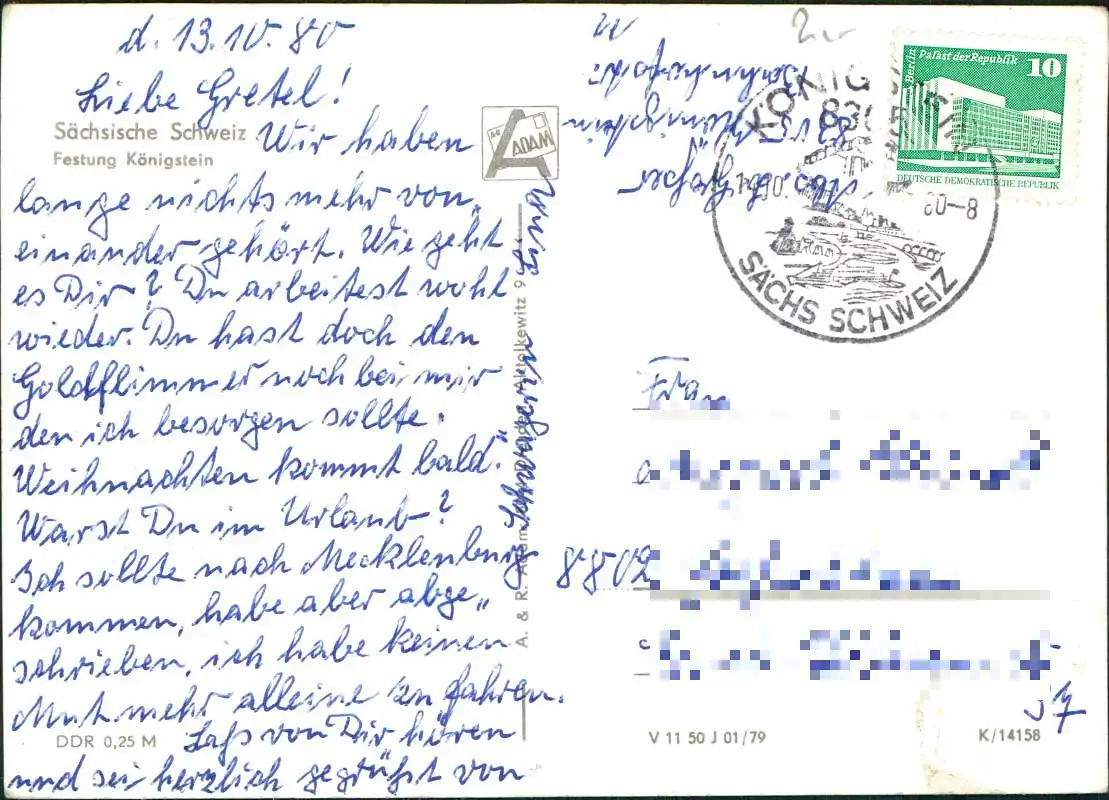 d. 13.10.80
Liebe Gretel!
Sächsische Schweiz
Festung Königstein
Wir haben
lange nichts mehr von„
einander gehört. Wie geht
es Dir? Du arbeitest wohl
wieder. Du hast doch den
Goldflimmer noch bei mir
den ich besorgen sollte.
Weihnachten kommt bald."
Warst Du im Urlaub?
Ich sollte nach Mecklenburg
kommen, habe aber abge„
schrieben, ich habe keinen
Mut mehr alleine zu fahren.
Lass von Dir hören
und sei herzlich gegrüßt von
Schwägerin
DDR 0,25 M
ADAM
A. & R. Adam, Dresden, Altolkewitz 9
Abs.
8305 Königstein
KÖNIGSTEIN
830
80-8
SÄCHS SCHWEIZ
Berlin Palast der Republik
10
DEUTSCHE DEMOKRATISCHE REPUBLIK
Frau
8802
57
V 11 50 J 01/79
K/14158